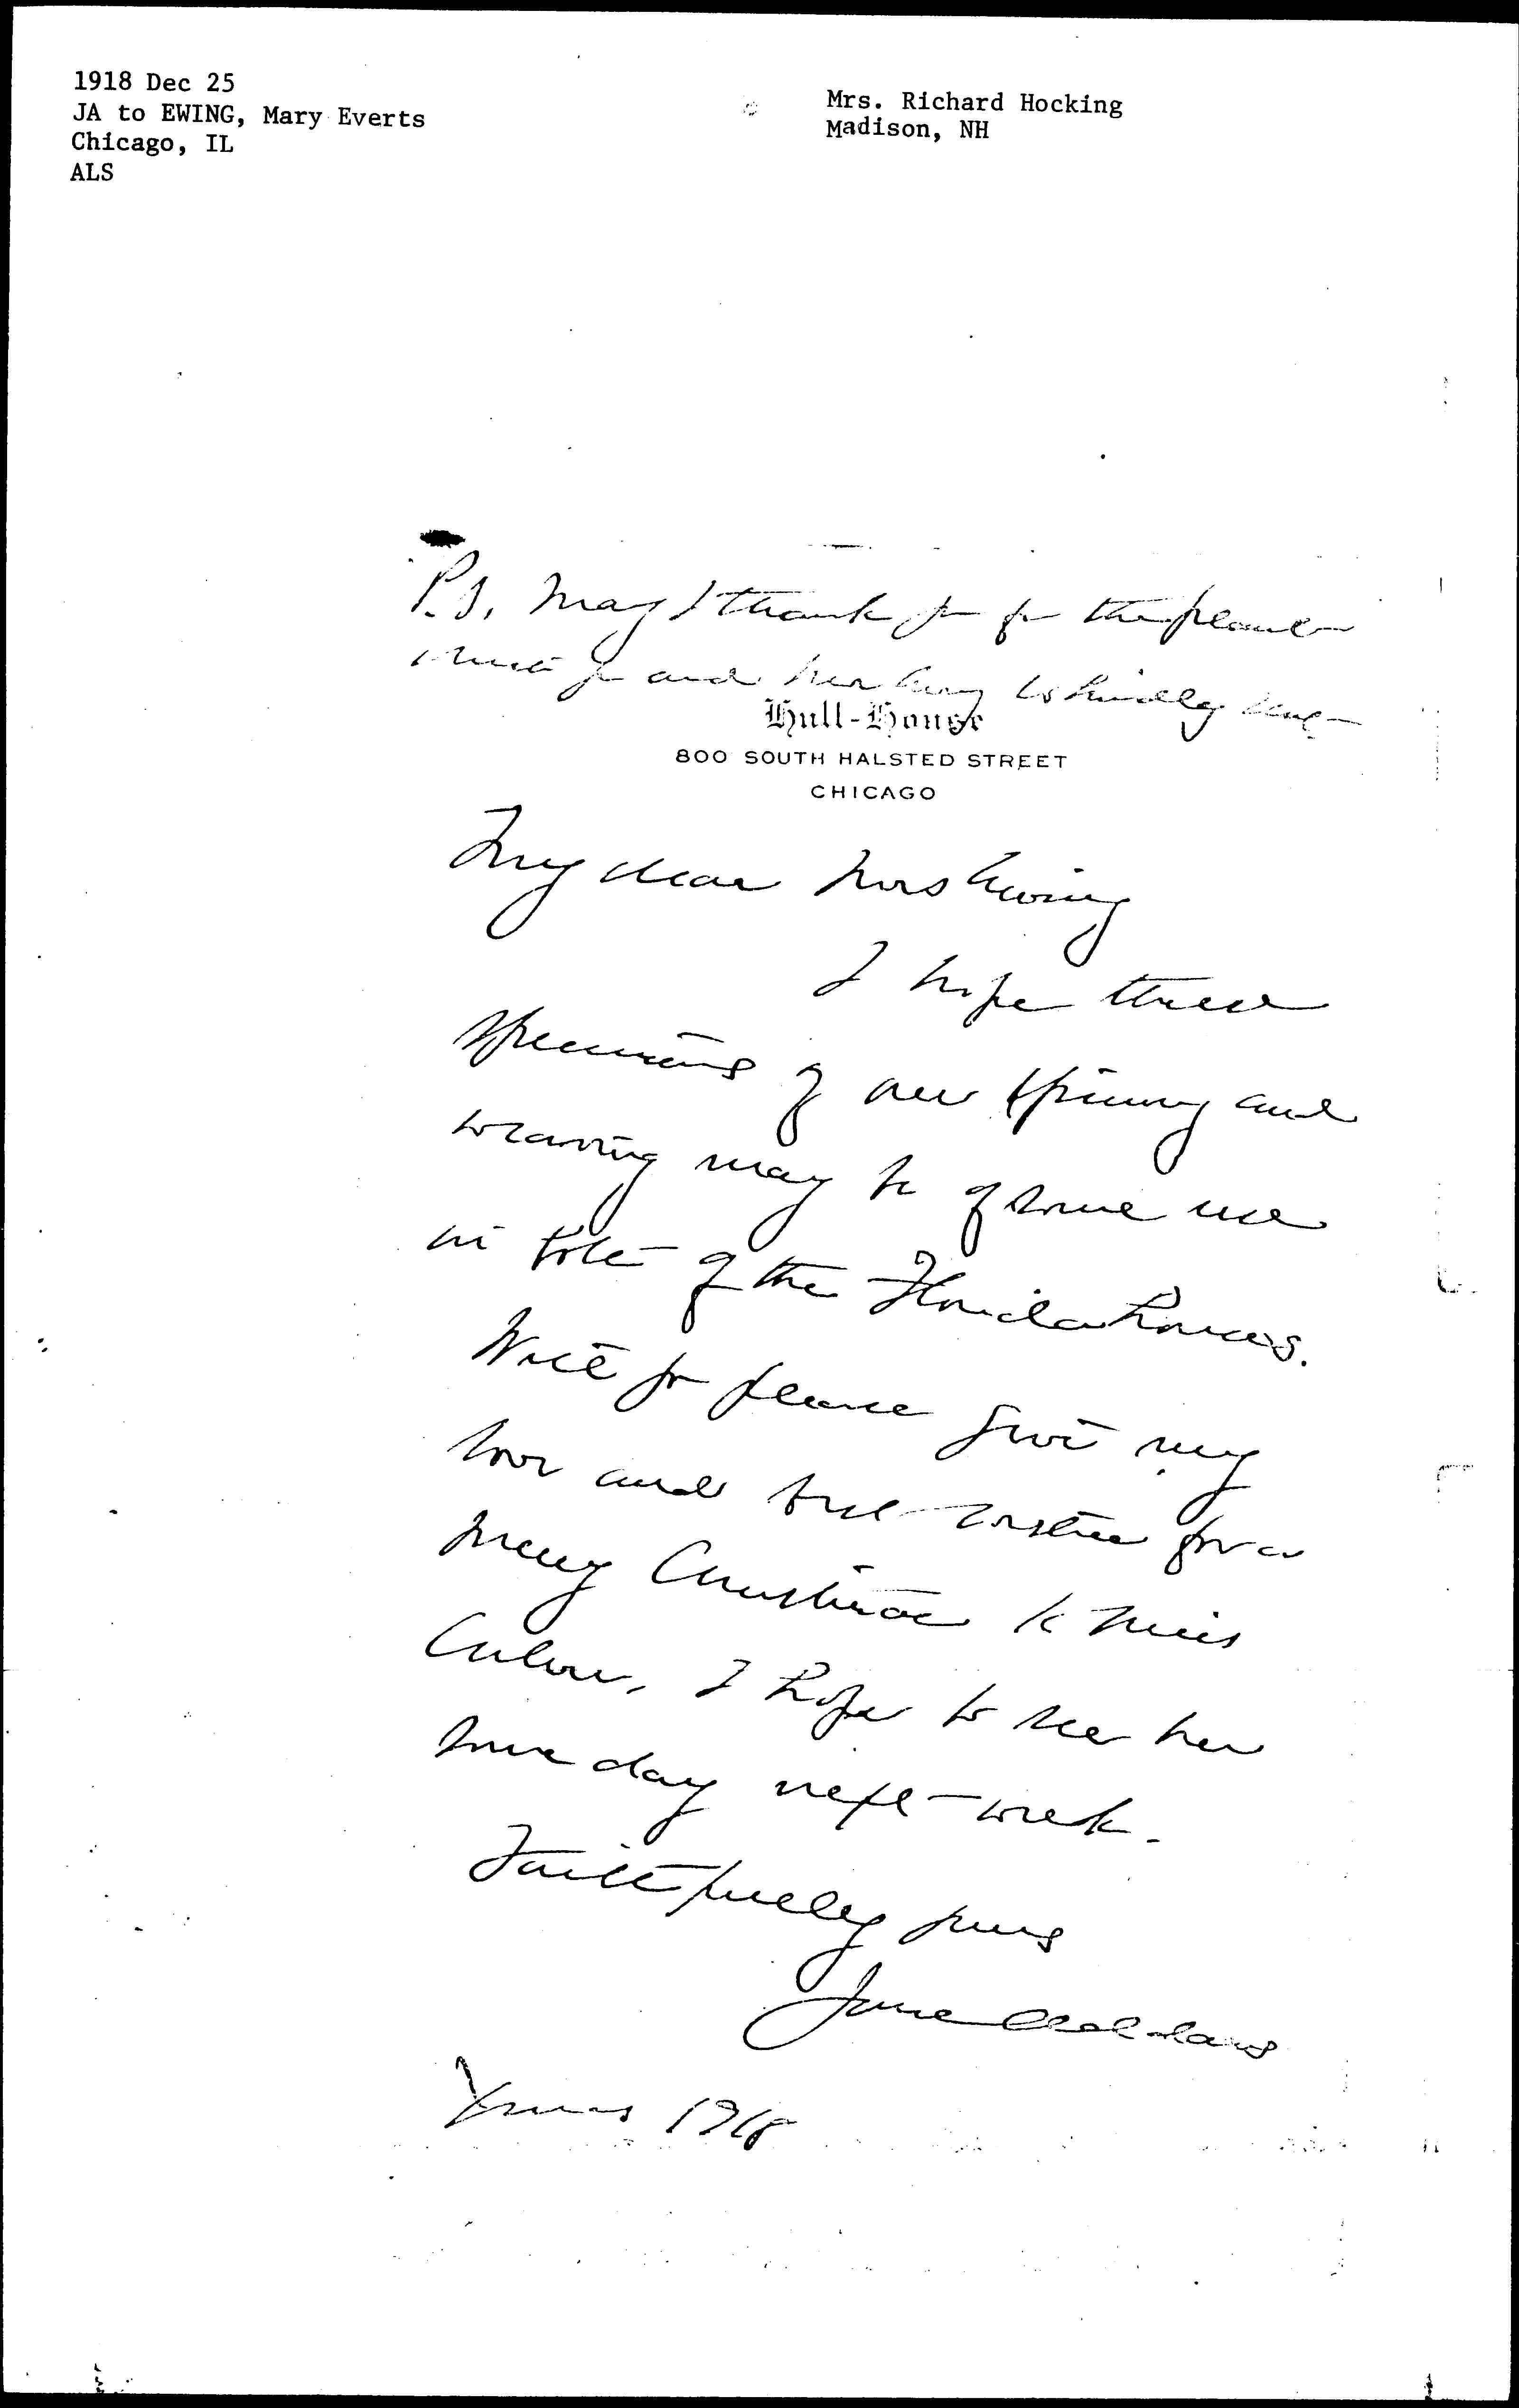 1918 Dec 25
JA to EWING, Mary Everts
Chicago, IL
ALS
Mrs. Richard Hocking
Madison, NH
P.S. May I thank you for the plant
which you and Mr Ewing so kindly sent
Hull-House
800 SOUTH HALSTED STREET
CHICAGO
My dear Mrs Ewing
I hope these
specimens of our spinning and
weaving may be of some use
in one of the Florida houses.
Will you please give my
love and best wishes for a
Merry Christmas to Miss
I hope to see her
some day next week.
Faithfully yours
Jane Addams
Xmas 1918